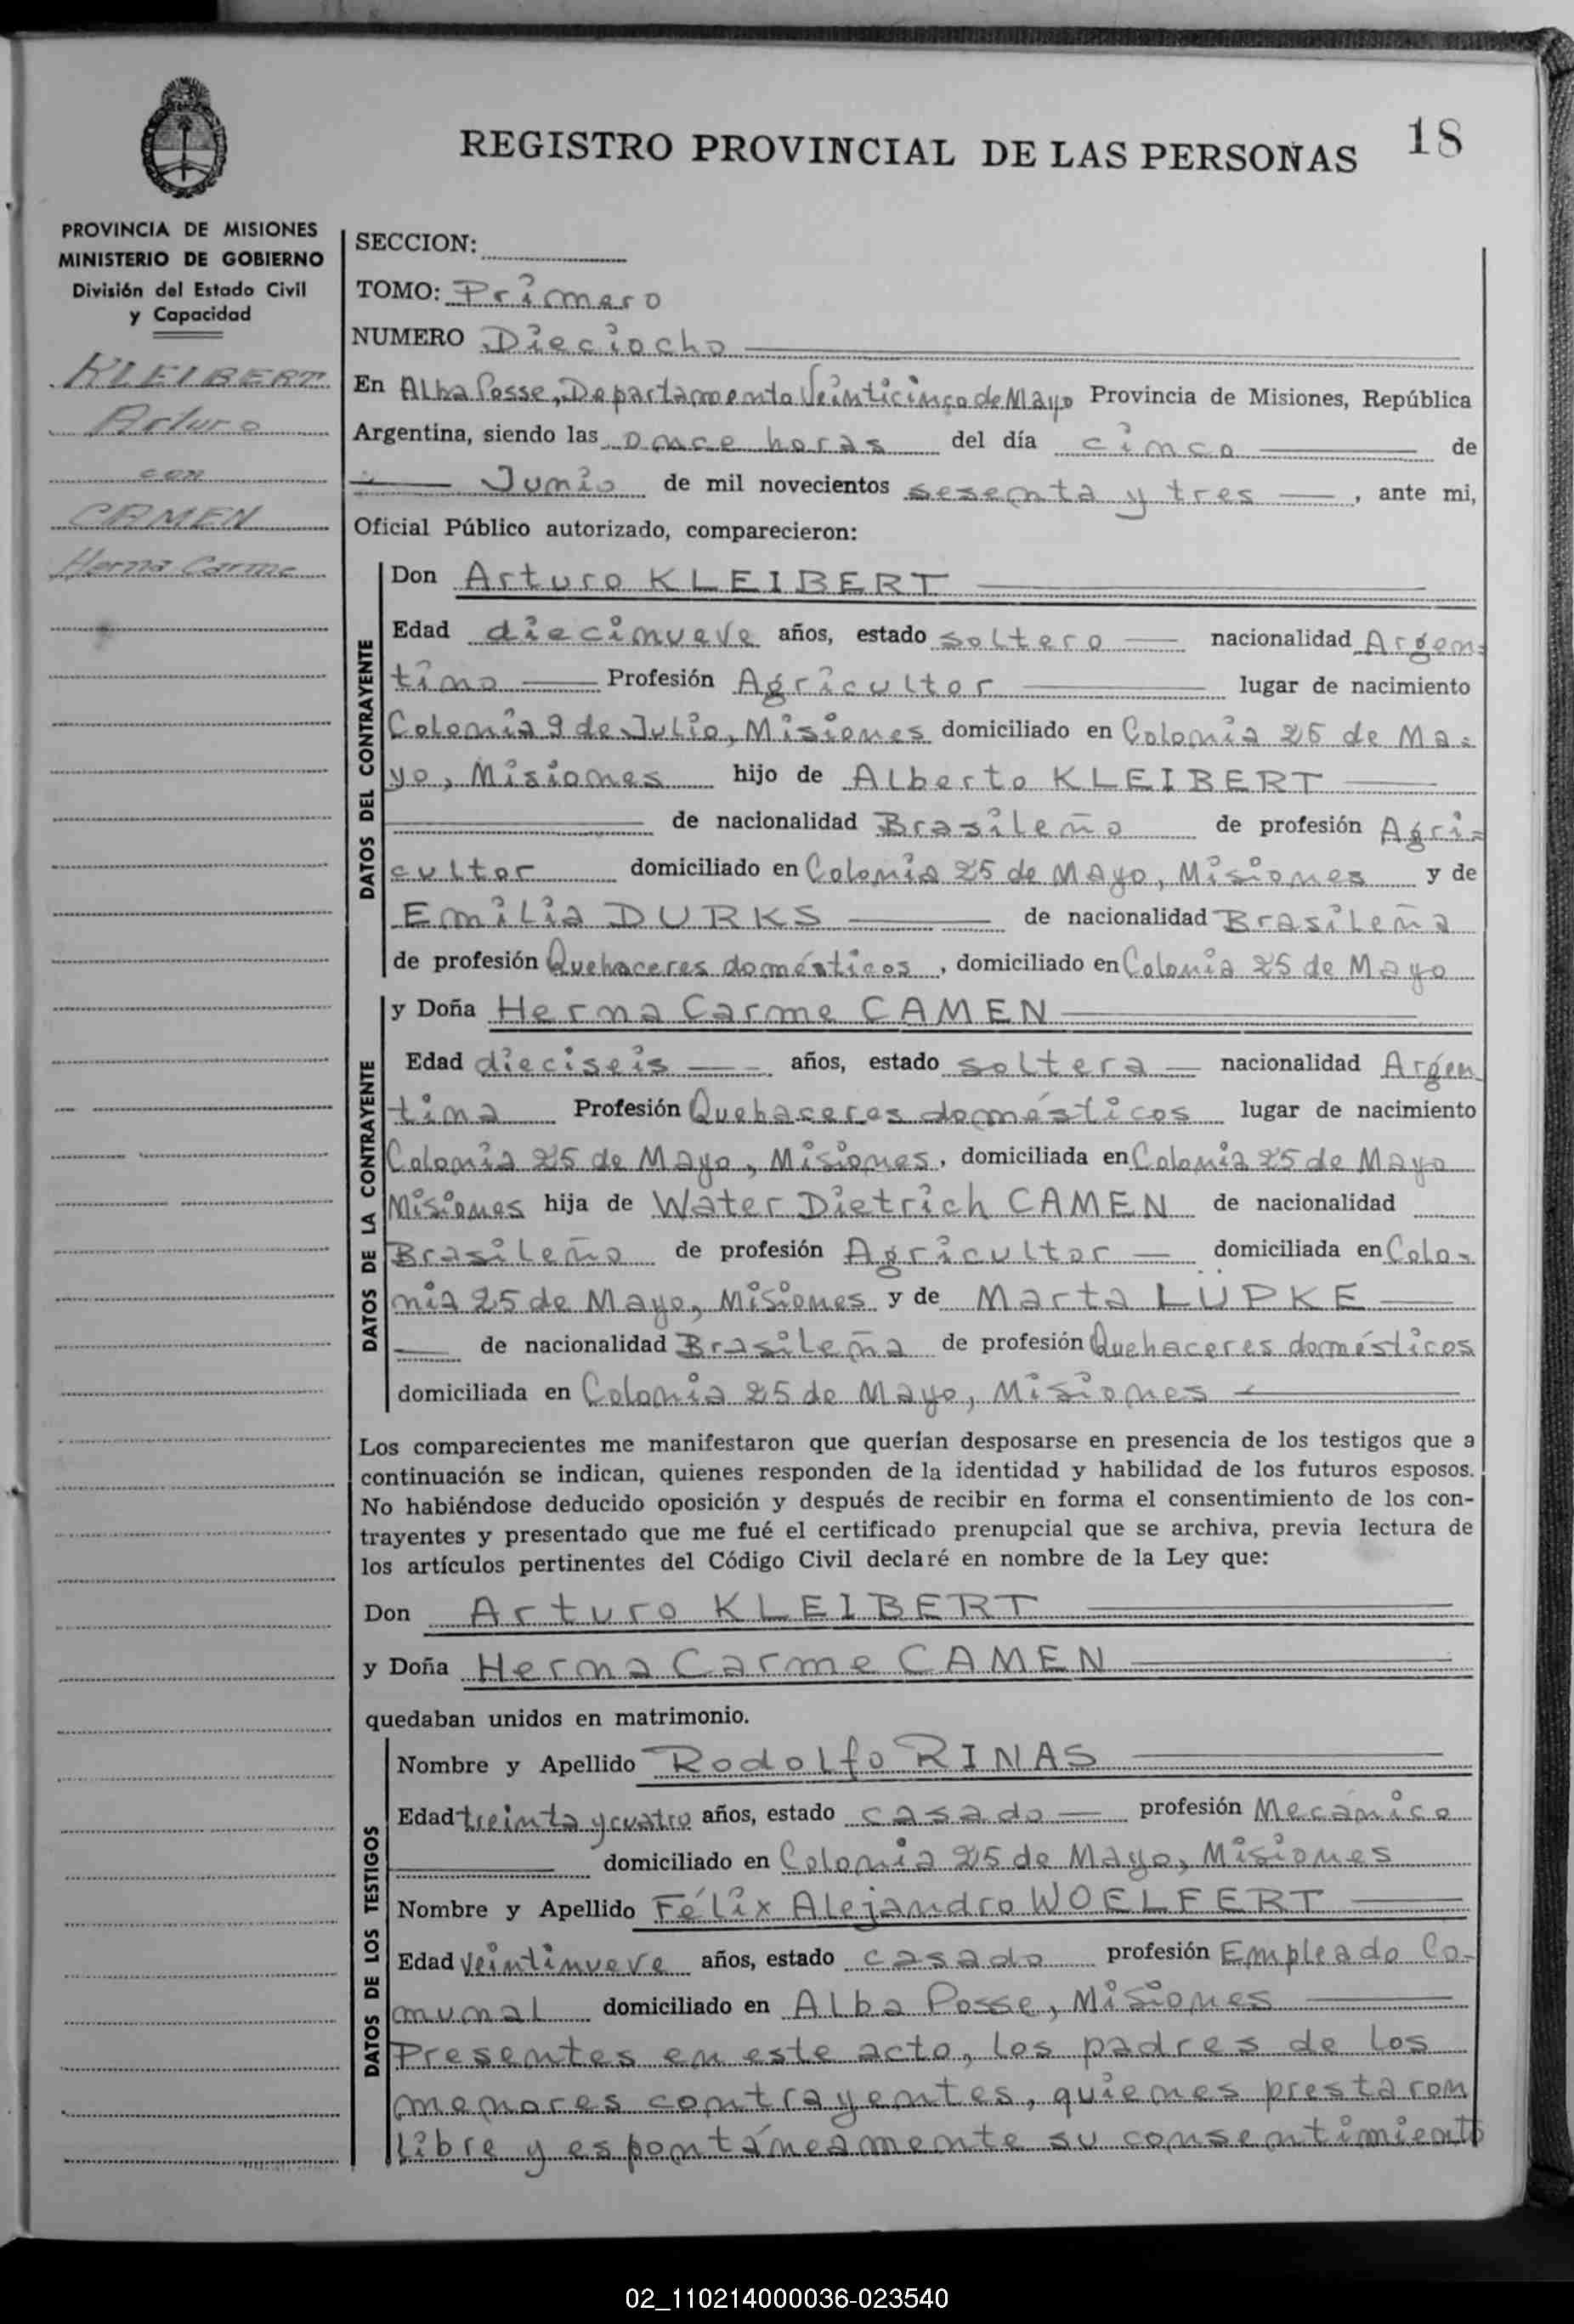 REGISTRO PROVINCIAL DE LAS PERSONAS 18
PROVINCIA DE MISIONES
MINISTERIO DE GOBIERNO
División del Estado Civil
y Capacidad
KLEIBERT
Arturo
con
CAMEN
Herna Carme
SECCION:
TOMO: Primero
NUMERO Dieciocho
En Alba Posse, Departamento Veinticinco de Mayo Provincia de Misiones, República
Argentina, siendo las once horas del día cinco de
Junio de mil novecientos sesenta y tres, ante mi,
Oficial Público autorizado, comparecieron:
DATOS DEL CONTRAYENTE
Don Arturo KLEIBERT
Edad diecinueve años, estado soltero nacionalidad Argen=
tino Profesión Agricultor lugar de nacimiento
Colonia 9 de Julio, Misiones domiciliado en Colonia 25 de Ma=
yo, Misiones hijo de Alberto KLEIBERT
de nacionalidad Brasileño de profesión Agri=
cultor domiciliado en Colonia 25 de Mayo, Misiones y de
Emilia DURKS de nacionalidad Brasileña
de profesión Quehaceres domésticos, domiciliado en Colonia 25 de Mayo
DATOS DE LA CONTRAYENTE
y Doña Herna Carme CAMEN
Edad dieciseis años, estado soltera nacionalidad Argen
tina Profesión Quehaceres domésticos lugar de nacimiento
Colonia 25 de Mayo, Misiones, domiciliada en Colonia 25 de Mayo
Misiones hija de Water Dietrich CAMEN de nacionalidad
Brasileño de profesión Agricultor domiciliada en Colo-
nia 25 de Mayo, Misiones y de Marta LÜPKE
de nacionalidad Brasileña de profesión Quehaceres domésticos
domiciliada en Colonia 25 de Mayo, Misiones
Los comparecientes me manifestaron que querían desposarse en presencia de los testigos que a
continuación se indican, quienes responden de la identidad y habilidad de los futuros esposos.
No habiéndose deducido oposición y después de recibir en forma el consentimiento de los con-
trayentes y presentado que me fué el certificado prenupcial que se archiva, previa lectura de
los artículos pertinentes del Código Civil declaré en nombre de la Ley que:
Don Arturo KLEIBERT
y Doña Herna Carme CAMEN
quedaban unidos en matrimonio.
DATOS DE LOS TESTIGOS
Nombre y Apellido Rodolfo RINAS
Edad treinta y cuatro años, estado casado profesión Mecánico
domiciliado en Colonia 25 de Mayo, Misiones
Nombre y Apellido Félix Alejandro WOELFERT
Edad veintinueve años, estado casado profesión Empleado Co-
munal domiciliado en Alba Posse, Misiones
Presentes en este acto, los padres de los
menores contrayentes, quienes prestaron
libre y espontáneamente su consentimiento
02_110214000036-023540